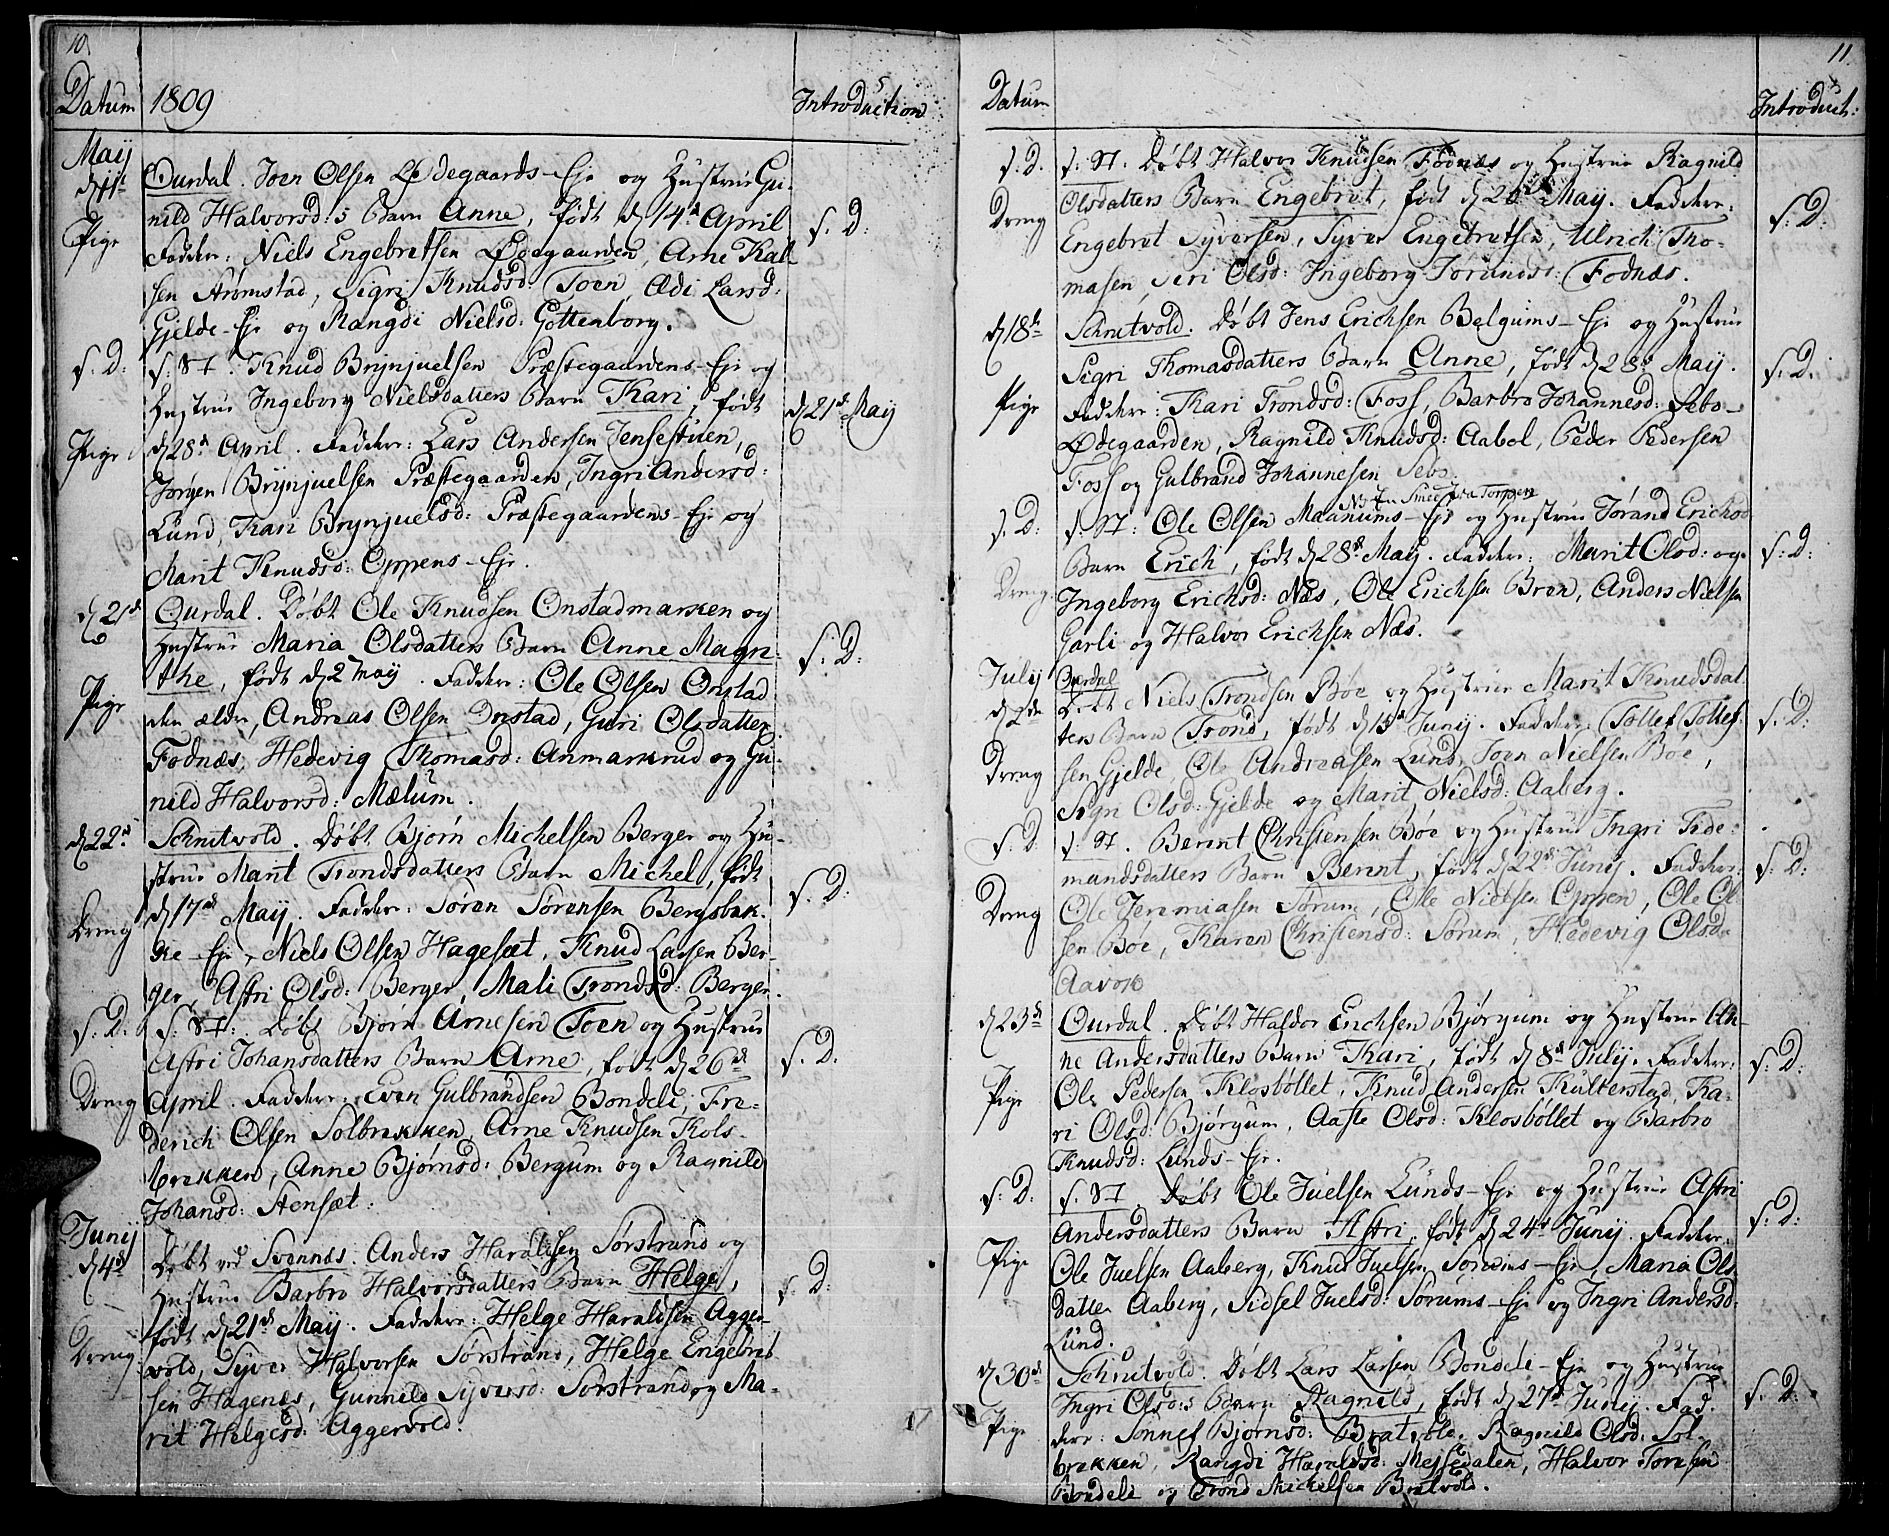 10.
Datum 1809 Introduction
May
d 11te
Pige
Ourdal. Joen Olsen Ødegaards-Eje og Hustrue Gu-
nild Halvorsd:s Barn Anne, født d 14de April
Faddere: Niels Engebretsen Ødegaarden, Arne Kal-
sen Strømstad, Sigri Knudsd: Toen, Ædi Larsd:
Gjelde-Eje og Rangdi Nielsd: Gottenborg.
s. D:
s. D:
s. St. Knud Brynjuelsen Præstegaardens-Eje og
Hustrue Ingeborg Nielsdatters Barn Kari, født
d 28de April. Faddere: Lars Andersen Jensestuen,
Jørgen Brynjuelsen Præstegaarden, Ingri Andersd:
Lund, Kari Brynjuelsd: Præstegaardens-Eje og
Marit Knudsd: Oppens-Eje.
Pige
d 21de May
d 21de
Pige
Ourdal. Døbt Ole Knudsen Onstadmarken og
Hustrue Maria Olsdatters Barn Anne Magre-
the, født d 2 May. Faddere: Ole Olsen Onstad
den ældre, Andreas Olsen Onstad, Guri Olsdatter
Fodnæs, Hedevig Thomasd: Anmarkrud og Gu-
nild Halvorsd: Mælum.
s. D:
d 22de
Dreng
Schrutvold. Døbt Bjørn Michelsen Berger og Hu-
strue Marit Trondsdatters Barn Michel, født
d 17de May. Faddere: Søren Sørensen Bergsbak-
ke-Eje, Niels Olsen Hagesæt, Knud Larsen Ber-
ger, Astri Olsd: Berger, Mali Trondsd: Berger.
s. D:
s. D:
Dreng
s. St: Døbt Bjørn Arnesen Toen og Hustrue
Astri Johansdatters Barn Arne, født d 26de
April. Faddere: Even Gulbrandsen Bondeli, Fre-
derich Olsen Solbrekken, Arne Knudsen Kols-
brekken, Anne Bjørnsd: Bergum og Ragnild
Johansd: Stensæt.
s. D.
Junij
d 4de
Dreng
Døbt ved Svennæs. Anders Haraldsen Sørstrand og
Hustrue Barbro Halvorsdatters Barn Helge,
født d 21de May. Faddere: Helge Haraldsen Agger-
vold, Syver Halvorsen Sørstrand, Helge Engebret-
sen Hagenæs, Gunnild Syversd: Sørstrand og Ma-
rit Helgesd: Aggervold.
s. D:
11.
Datum Introduct:
s. D.
Dreng
s: St. Døbt Halvor Knudsen Fodnæs og Hustrue Ragnild
Olsdatters Barn Engebret, født d 20de May. Faddere:
Engebret Syversen, Syver Engebretsen, Ulrich Tho-
masen, Siri Olsd: Ingeborg Jørundsd: Fodnæs.
s. D:
d 18de
Pige
Schrutvold. Døbt Jens Erichsen Belgums-Eje og Hustrue
Sigri Thomasdatters Barn Anne, født d 28de May.
Faddere: Kari Trondsd: Foss, Barbro Johannesd: Sebo-
Ødegaarden, Ragnild Knudsd: Aabol, Peder Pedersen
Foss og Gulbrand Johannesen Sebo.
s. D.
s. D:
Dreng
NB: En Smed fra Torpen
s: St: Ole Olsen Maanums-Eje og Hustrue Jørand Erichsd
Barn Erich, født d 28de May. Faddere: Marit Olsd: og
Ingeborg Erichsd: Næs, Ole Erichsen Bren, Anders Nielsen
Garli og Halvor Erichsen Næs.
s: D:
Julij
d 2den
Dreng
Ourdal
Døbt Niels Trondsen Bøe og Hustrue Marit Knudsdat-
ters Barn Trond, født d 15de Junij. Faddere: Tollef Tollef-
sen Gjelde, Ole Andreasen Lund, Joen Nielsen Bøe,
Sigri Olsd: Gjelde og Marit Nielsd: Aaberg.
s. D:
s. D:
Dreng
s. St. Bernt Christensen Bøe og Hustrue Ingri Tide-
mandsdatters Barn Bernt, født d 22de Junij. Faddere:
Ole Jeremiasen Sørum, Ole Nielsen Oppen, Ole Ol-
sen Bøe, Karen Christensd: Sørum, Hedevig Olsd:
Aavok
s: D:
d 23de
Pige
Ourdal. Døbt Haldor Erichsen Bjørgum og Hustrue An-
ne Andersdatters Barn Kari, født d 8de Julij. Faddere:
Ole Pedersen Klosbøllet, Knud Andersen Kulterstad, Ka-
ri Olsd: Bjørgum, Aaste Olsd: Klosbøllet og Barbro
Knudsd: Lunds-Eje.
s: D:
s: D:
Pige
s. St Døbt Ole Juelsen Lunds-Eje og Hustrue Astri
Andersdatters Barn Astri, født d 24de Junij. Faddere:
Ole Juelsen Aaberg, Knud Juelsen Sørums-Eje, Maria Ols-
datter Aaberg, Sidsel Juelsd: Sørums-Eje og Ingri Andersd:
Lund.
s: D:
d 30de
Pige
Schrutvold. Døbt Lars Larsen Bondeli-Eje og Hustrue
Ingri Olsd:s Barn Ragnild, født d 27de Junij. Fad-
dere: Sønnef Bjørnsd: Bratvold, Ragnild Olsd: Sol-
brekken, Rangdi Haraldsd: Mejssedalen, Halvor Toresen
Bondeli og Trond Michelsen Bratvold.
s: D: